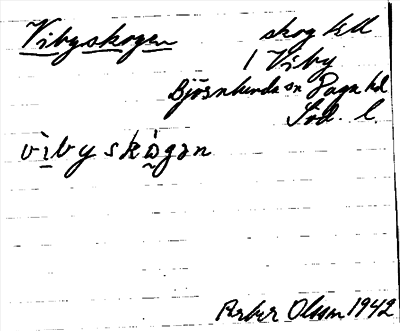 Vibyskogen
skog t.ll
1 Viby
Björnlunda sn Daga hd
Söd. l.
vìbyskògən
Olsson 1942